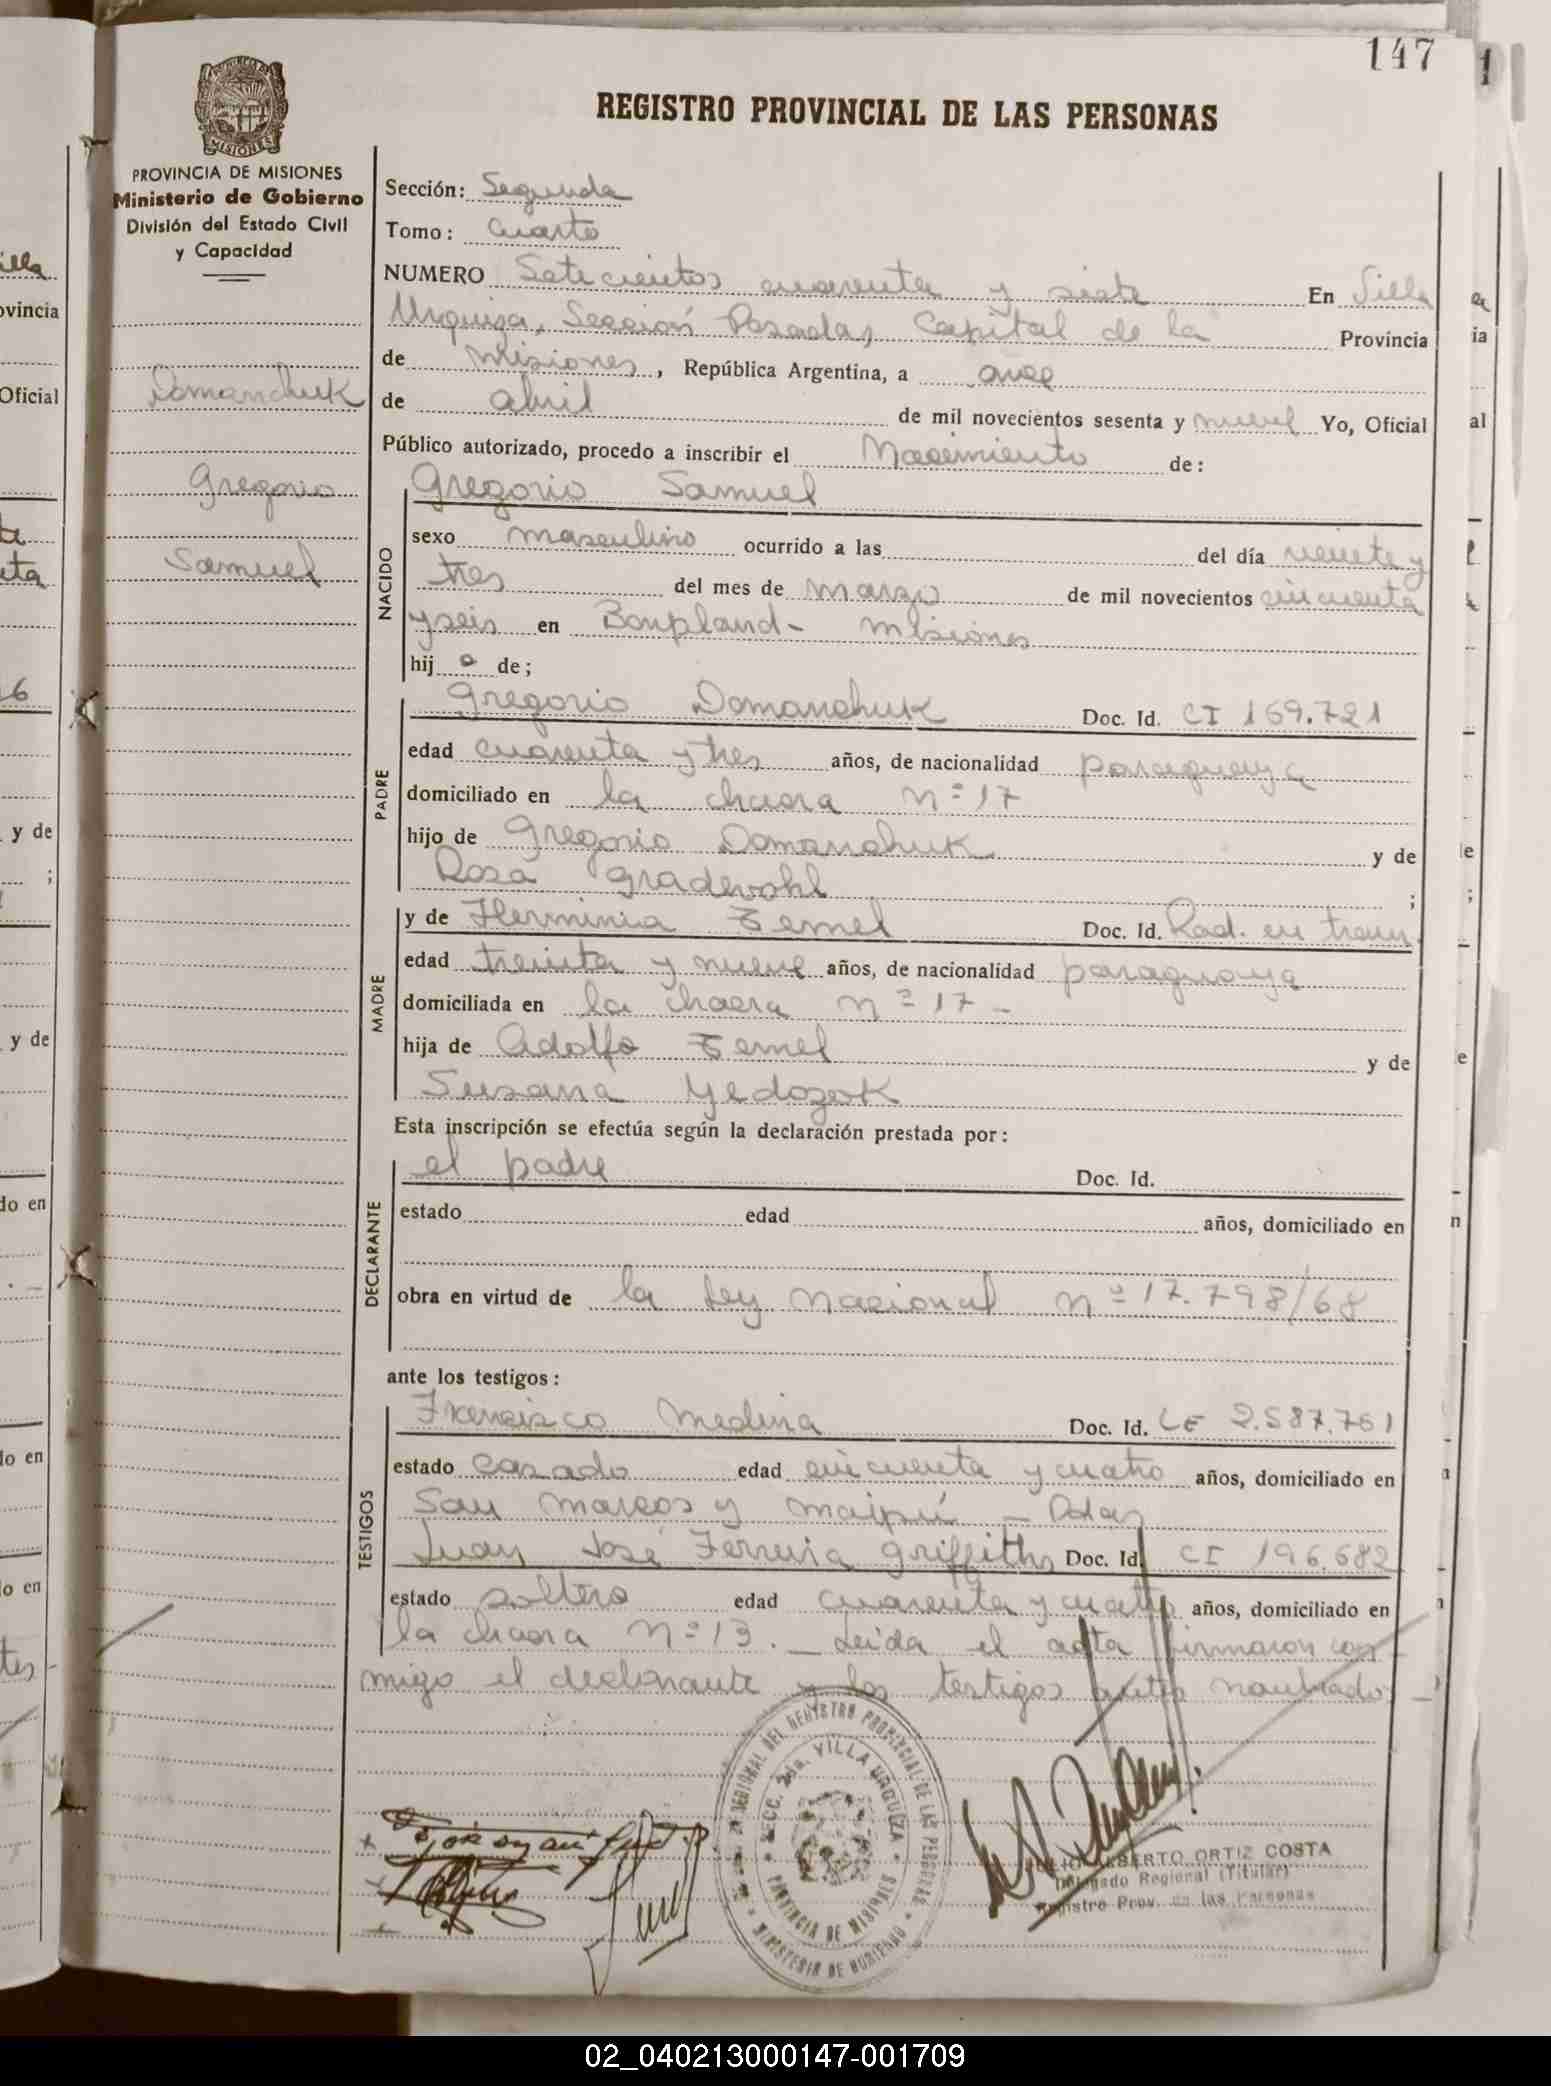 147
REGISTRO PROVINCIAL DE LAS PERSONAS
PROVINCIA DE MISIONES
Ministerio de Gobierno
División del Estado Civil
y Capacidad
Domanchuk
Gregorio
Samuel
Sección: Segunda
Tomo: Cuarto
NUMERO Setecientos cuarenta y siete En Villa
Urquiza, Sección Posadas, Capital de la Provincia
de Misiones, República Argentina, a once
de abril de mil novecientos sesenta y nueve Yo, Oficial
Público autorizado, procedo a inscribir el Nacimiento de:
NACIDO
Gregorio Samuel
sexo masculino ocurrido a las del día veinte y
tres del mes de marzo de mil novecientos cincuenta
y seis en Bonpland - Misiones
hij o de;
PADRE
Gregorio Domanchuk Doc. Id. CI 169.721
edad cuarenta y tres años, de nacionalidad paraguaya
domiciliado en la chacra nº 17
hijo de Gregorio Domanchuk y de
Rosa Gradewohl ;
MADRE
y de Herminia Zemel Doc. Id. Rad. en tram.
edad treinta y nueve años, de nacionalidad paraguaya
domiciliada en la chacra nº 17 -
hija de Adolfo Zemel y de
Susana Yedozok
Esta inscripción se efectúa según la declaración prestada por:
DECLARANTE
el padre Doc. Id.
estado edad años, domiciliado en
obra en virtud de la Ley Nacional nº 17.798/68
ante los testigos:
TESTIGOS
Francisco Medina Doc. Id. LE 2.587.761
estado casado edad cincuenta y cuatro años, domiciliado en
San Marcos y Maipú - Pdas
Juan José Ferreira Griffiths Doc. Id. CI 196.682
estado soltero edad cuarenta y cuatro años, domiciliado en
la chacra nº 13. - Leida el acta firmaron con-
migo el declarante y los testigos antes nombrados -
REGIONAL DEL REGISTRO PROVINCIAL DE LAS PERSONAS
SECC. 2da. VILLA URQUIZA
PROVINCIA DE MISIONES
MINISTERIO DE GOBIERNO
ALBERTO ORTIZ COSTA
Delegado Regional (Titular)
Registro Prov. de las Personas
02_040213000147-001709